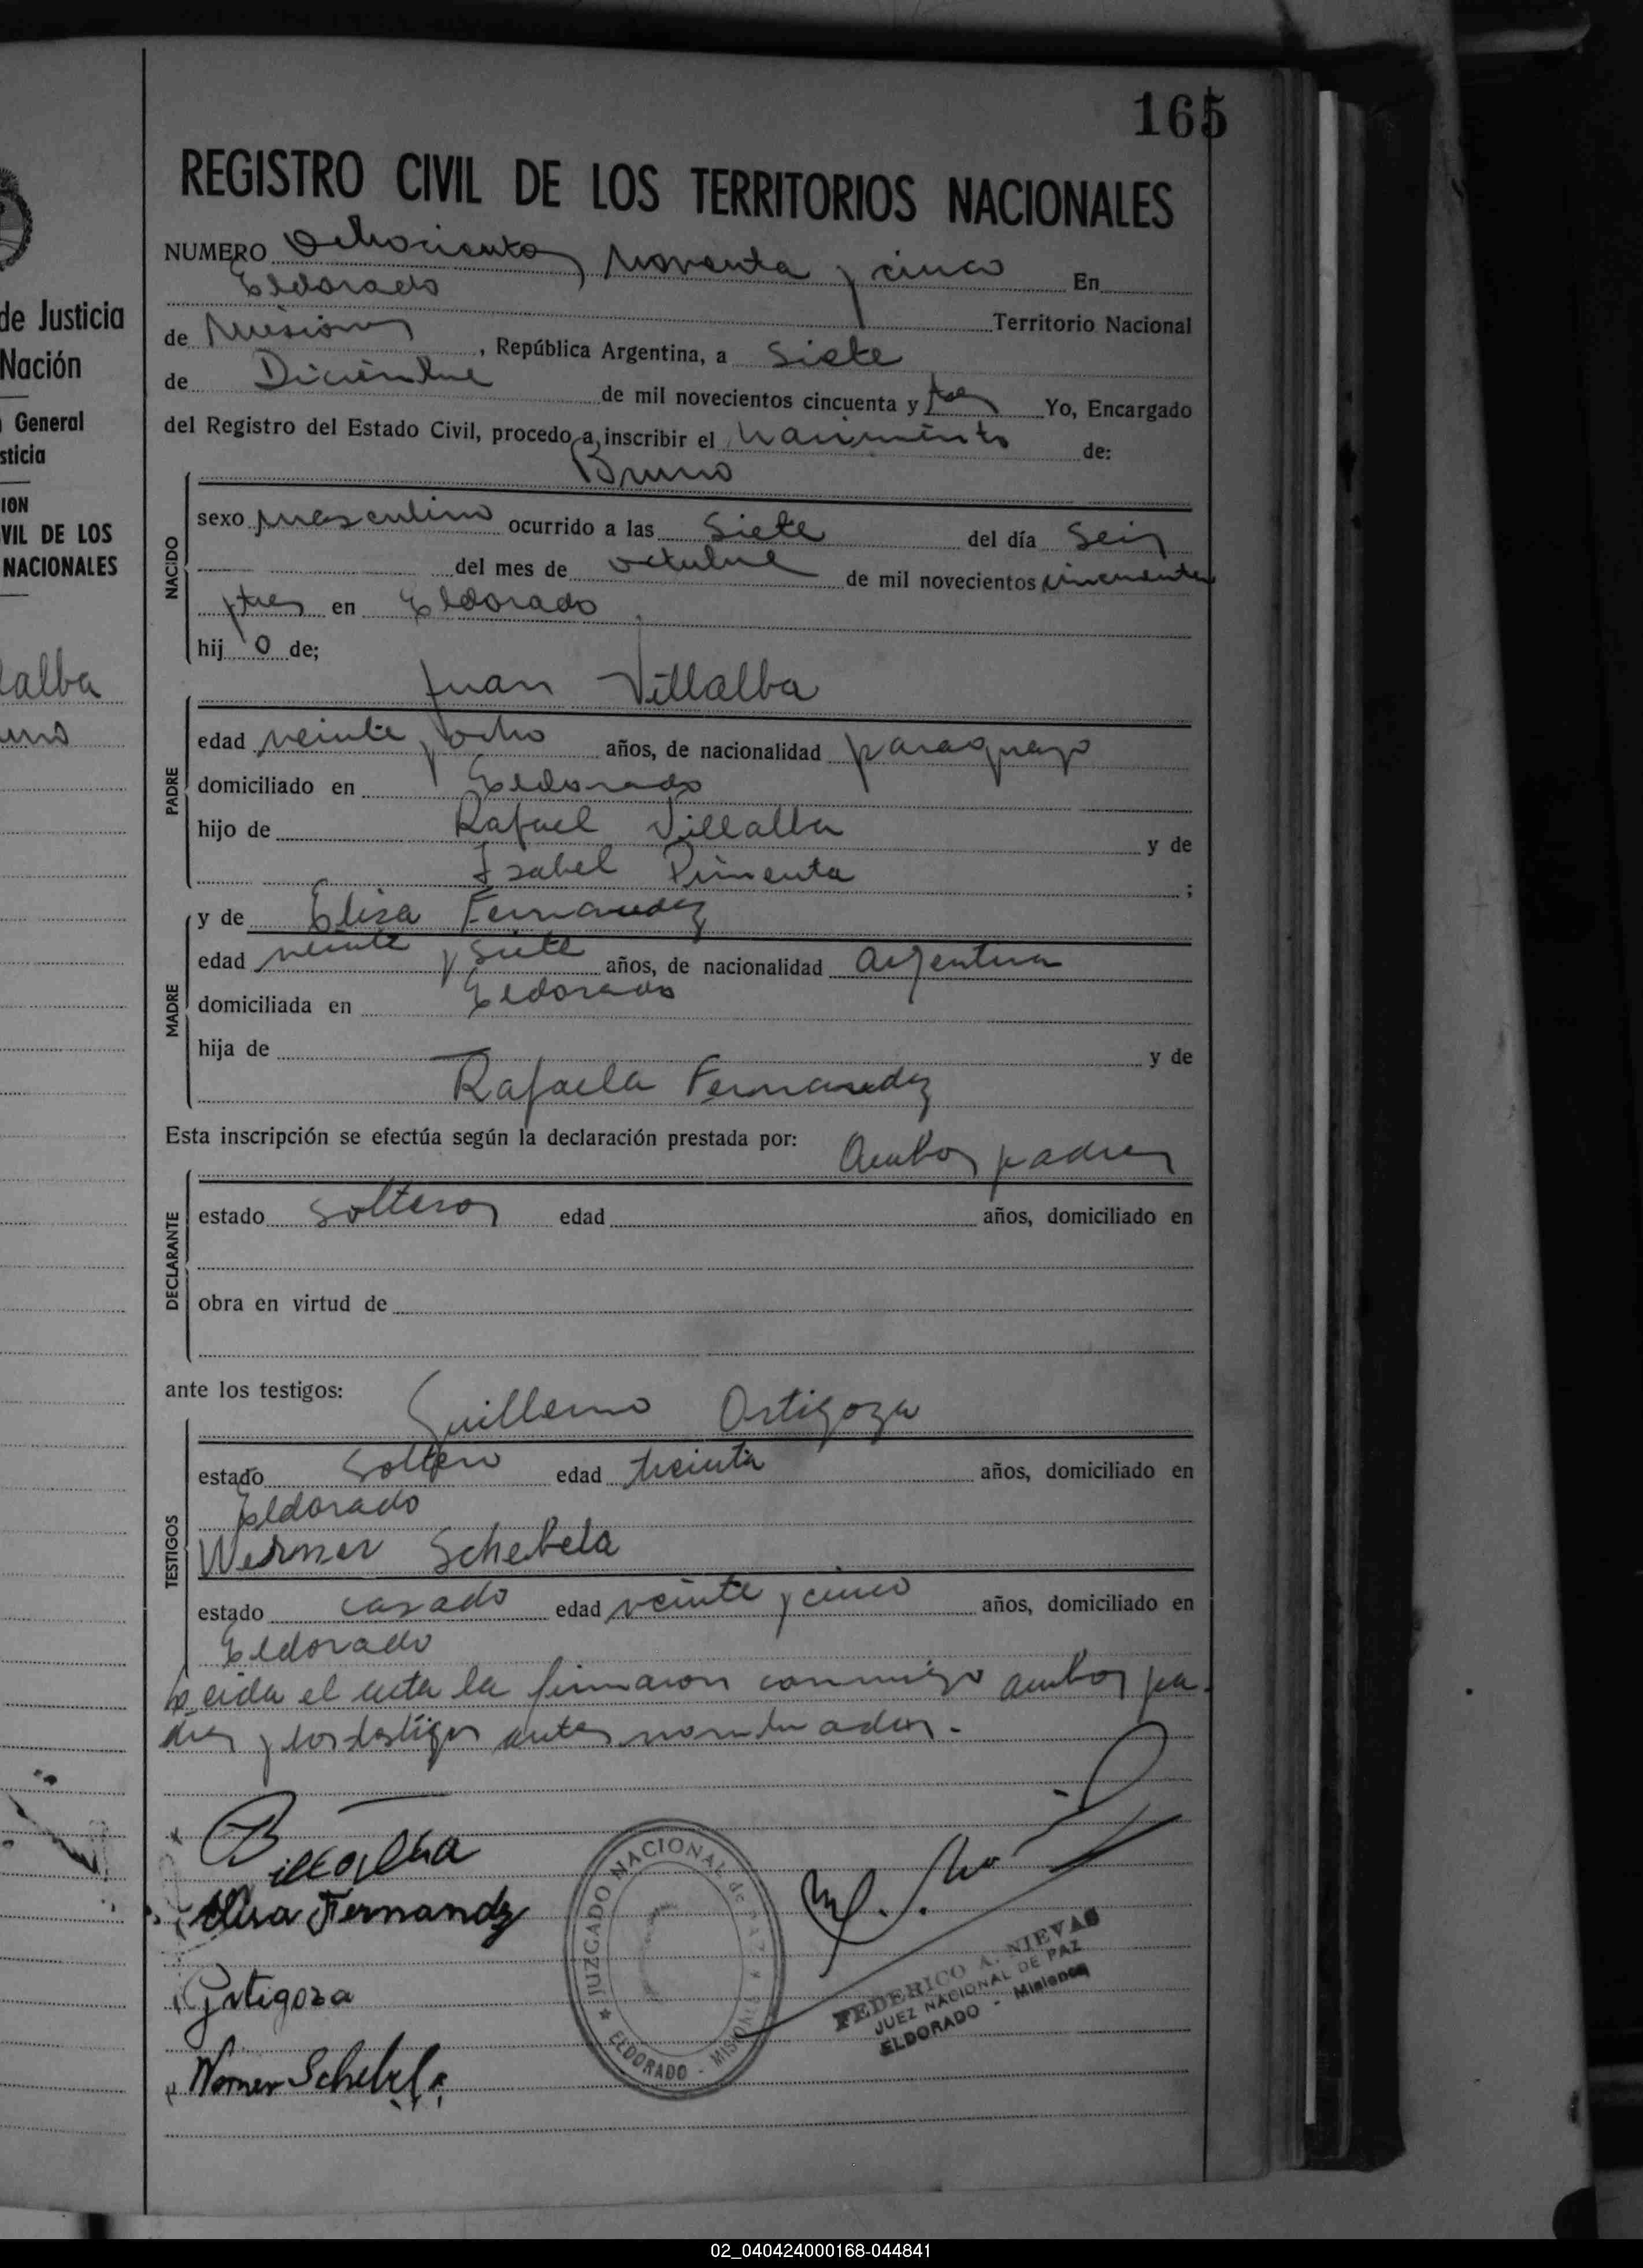 165
REGISTRO CIVIL DE LOS TERRITORIOS NACIONALES
NUMERO Ochocientos Noventa y cinco En
Eldorado Territorio Nacional
de Misiones, República Argentina, a Siete
de Diciembre de mil novecientos cincuenta y tres Yo, Encargado
del Registro del Estado Civil, procedo a inscribir el Nacimiento de:
Bruno
NACIDO
sexo masculino ocurrido a las Siete del día Seis
del mes de octubre de mil novecientos cincuenta
y tres en Eldorado
hij o de;
Juan Villalba
PADRE
edad veinte y ocho años, de nacionalidad paraguayo
domiciliado en Eldorado
hijo de Rafael Villalba y de
Isabel Pimenta ;
MADRE
y de Elisa Fernandez
edad veinte y siete años, de nacionalidad Argentina
domiciliada en Eldorado
hija de y de
Rafaela Fernandez
Esta inscripción se efectúa según la declaración prestada por: Ambos padres
DECLARANTE
estado solteros edad años, domiciliado en
obra en virtud de
ante los testigos: Guillermo Ortigoza
TESTIGOS
estado Soltero edad treinta años, domiciliado en
Eldorado
Werner Schebela
estado casado edad veinte y cinco años, domiciliado en
Eldorado
Leida el acta la firmaron conmigo ambos pa-
dres y los testigos antes nombrados.-
Villalba
Elisa Fernandz
Ortigoza
Werner Schebela
JUZGADO NACIONAL de PAZ
ELDORADO - MISIONES
FEDERICO A. NIEVAS
JUEZ NACIONAL DE PAZ
ELDORADO - Misiones
de Justicia
Nación
General
sticia
ION
VIL DE LOS
NACIONALES
lalba
uno
02_040424000168-044841